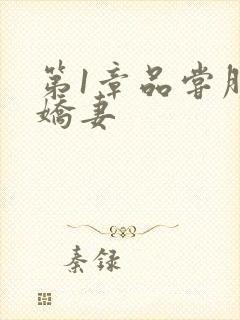 第1章品尝
娇妻
秦录